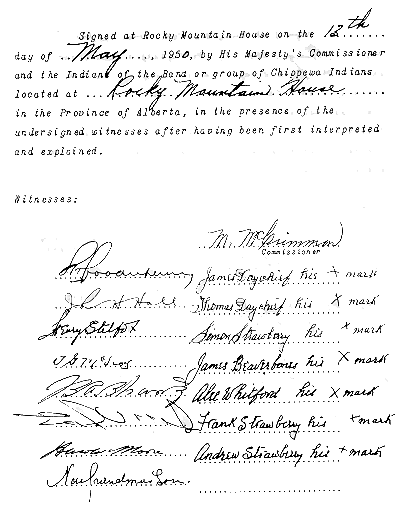 Signed at Rocky Mountain House on the 12th
day of May 1950, by His Majesty's Commissioner
and the Indians of the Band or group of Chippewa Indians
located at Rocky Mountain House
in the Province of Alberta, in the presence of the
undersigned witnesses after having been first interpreted
and explained.
Witnesses:
M. McCrimmon
Commissioner
James Daychief his X mark
Thomas Daychief his X mark
Simon Strawbery his X mark
James Beaverbones his X mark
Alec Whitford his X mark
Frank Strawbery his X mark
Andrew Strawbery his + mark